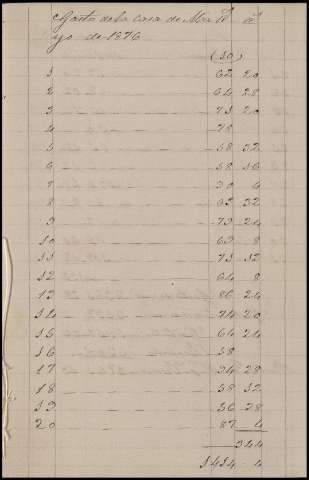 Gasto de la casa de Ma
yo de 1876
1 62 20
2 64 28
3 71 20
4 78
5 58 32
6 58 16
7 30 4
8 62 32
9 73 24
10 63 8
11 71 12
12 64 8
13 86 24
14 74 20
15 64 24
16 58
17 54 28
18 58 12
19 56 28
20 87 4
344